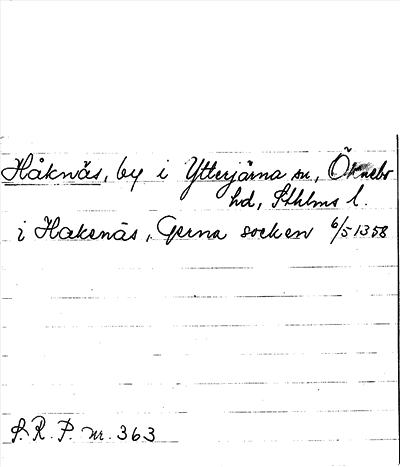 Håknäs, by i Ytterjärna sn, Öknebo
hd, Sthlms l.
i Hakenäs, Gerna socken 6/5 1358
S. R. P. nr. 363